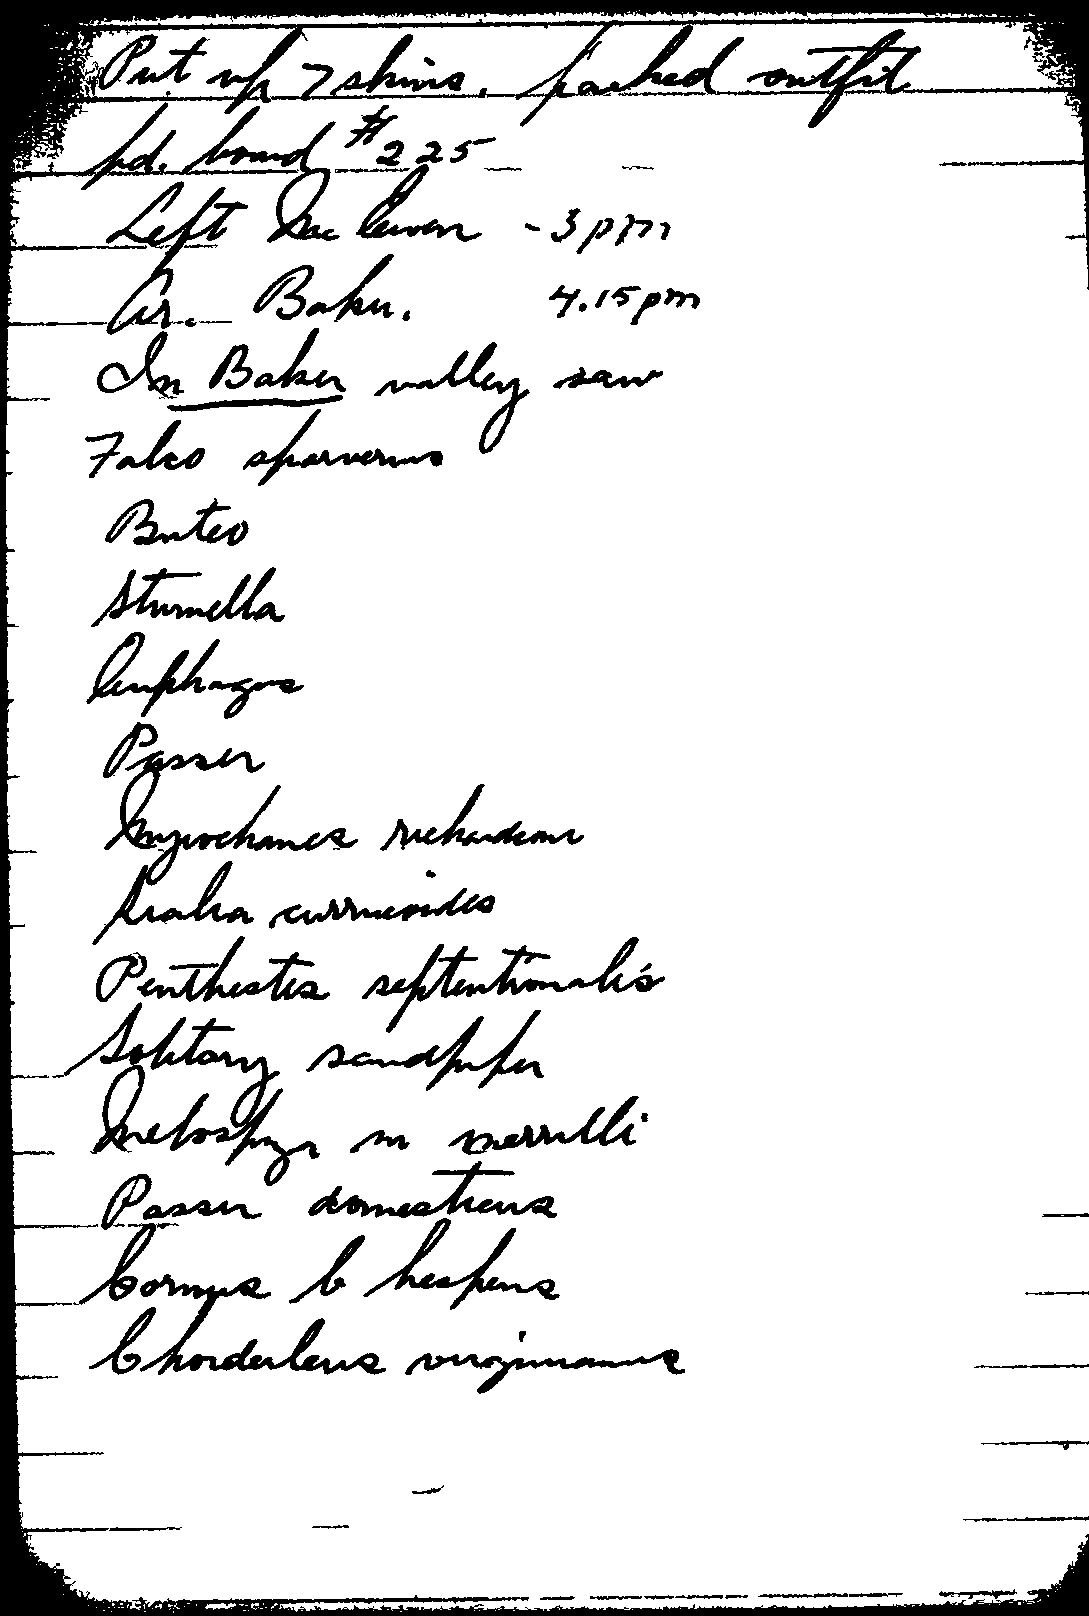 Put up 7 skins. packed outfit
pd. board #225
Left McEwen - 3 pm
Ar. Baker. 4.15 pm
In Baker valley saw
Falco sparverius
Buteo
Sturnella
Euphagus
Passer
Myiochanes richardsoni
Sialia currucoides
Penthestes septentrionalis
Solitary sandpiper
Melospiza m merrilli
Passer domesticus
Corvus b hesperis
Chordeiles virginianus